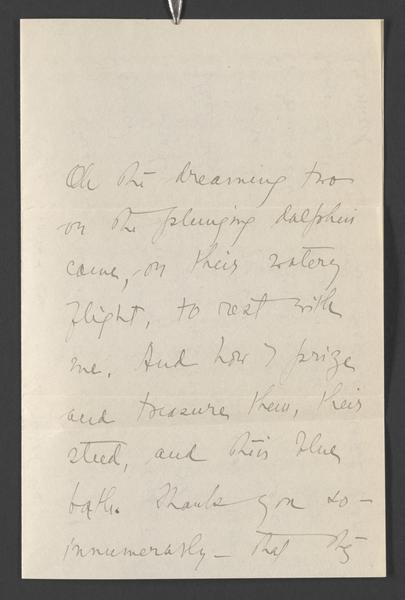 Oh the dreaming two
on the plunging dolphin
came, on their watery
flight, to rest with
me. And how I prize
and treasure them, their
steed, and their blue
bath. Thank you so —
innumerably — that